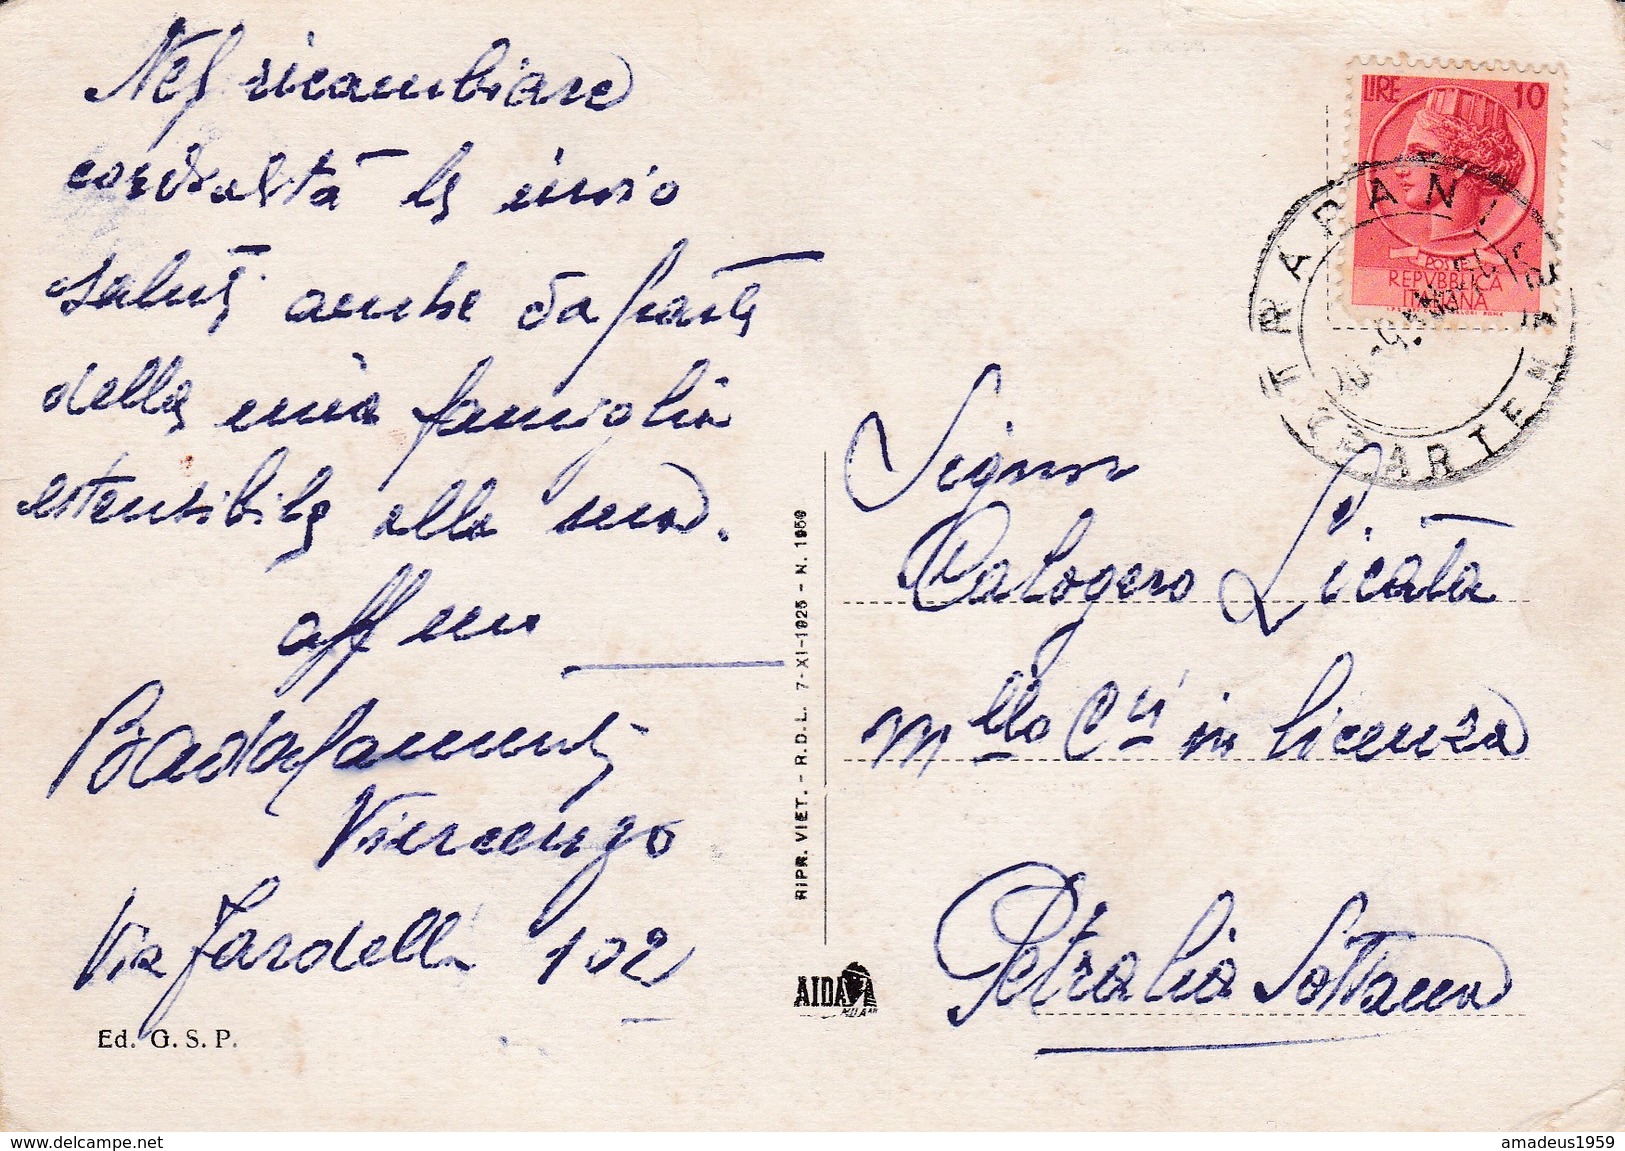 Nel ricambiare
cordialità le invio
saluti anche da parte
della mia famiglia
estensibile alla sua.
aff mo
Badalamenti
Vincenzo
Via Fardella 102
Ed. G. S. P.
RIPR. VIET. - R.D.L. 7-XI-1925 - N. 1950
AIDA
MILANO
LIRE 10
POSTE
REPVBBLICA
ITALIANA
TRAPANI
PARTENZE
Signor
Calogero Licata
m.llo CC.ri in licenza
Petralia Sottana
delcampe.net
amadeus1959